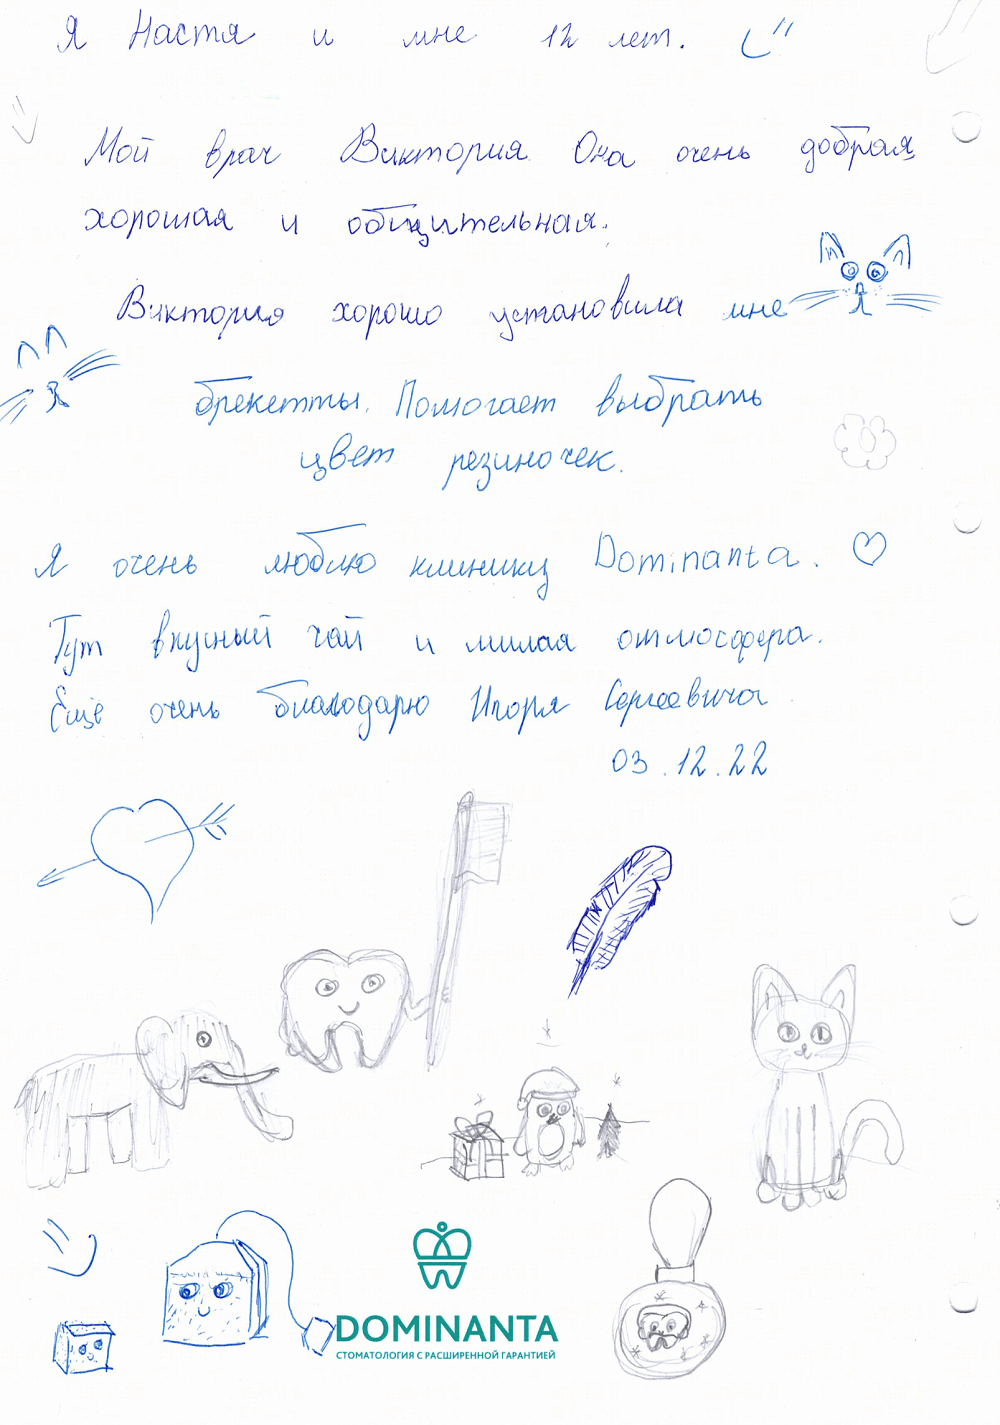 Я Настя и мне 12 лет.
Мой врач Виктория Она очень добрая
хорошая и общительная.
Виктория хорошо установила мне
брекетты. Помогает выбрать
цвет резиночек.
Я очень люблю клинику Dominanta. ♡
Тут вкусный чай и милая отмосфера.
Ещё очень благодарю Игоря Сергеевича
03.12.22
DOMINANTA
СТОМАТОЛОГИЯ С РАСШИРЕННОЙ ГАРАНТИЕЙ